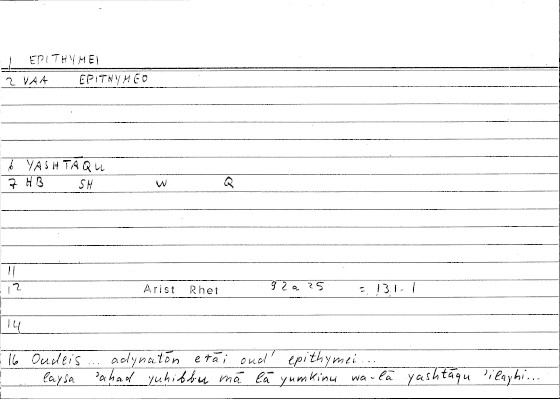 1 EPITHYMEI
2 VAA EPITHYMEO
6 YASHTĀQU
7 HB SH W Q
11
12 Arist Rhet 92a25 = 131.1
14
16 Oudeis ... adynatōn erāi oud' epithymei ...
laysa 'ahad yuhibbu mā lā yumkinu wa-lā yashtāqu 'ilayhi...